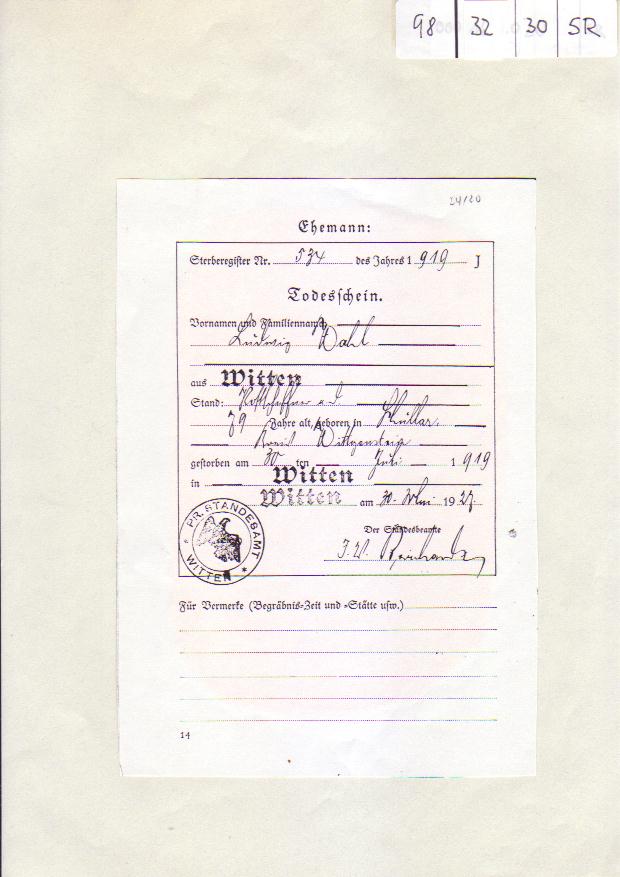 98 32 30 SR
24/20
Ehemann:
Sterberegister Nr. 534 des Jahres 1919
Todesschein.
Vornamen und Familienname
Ludwig Wahl
aus Witten
Stand: Postschaffner a. D.
79 Jahre alt, geboren in Schüllar,
Kreis Wittgenstein
gestorben am 30 ten Juli 1919
in Witten
Witten am 30. Mai 1927.
Der Standesbeamte
J. V.
PR. STANDESAMT
* WITTEN *
Für Vermerke (Begräbnis-Zeit und -Stätte usw.)
14